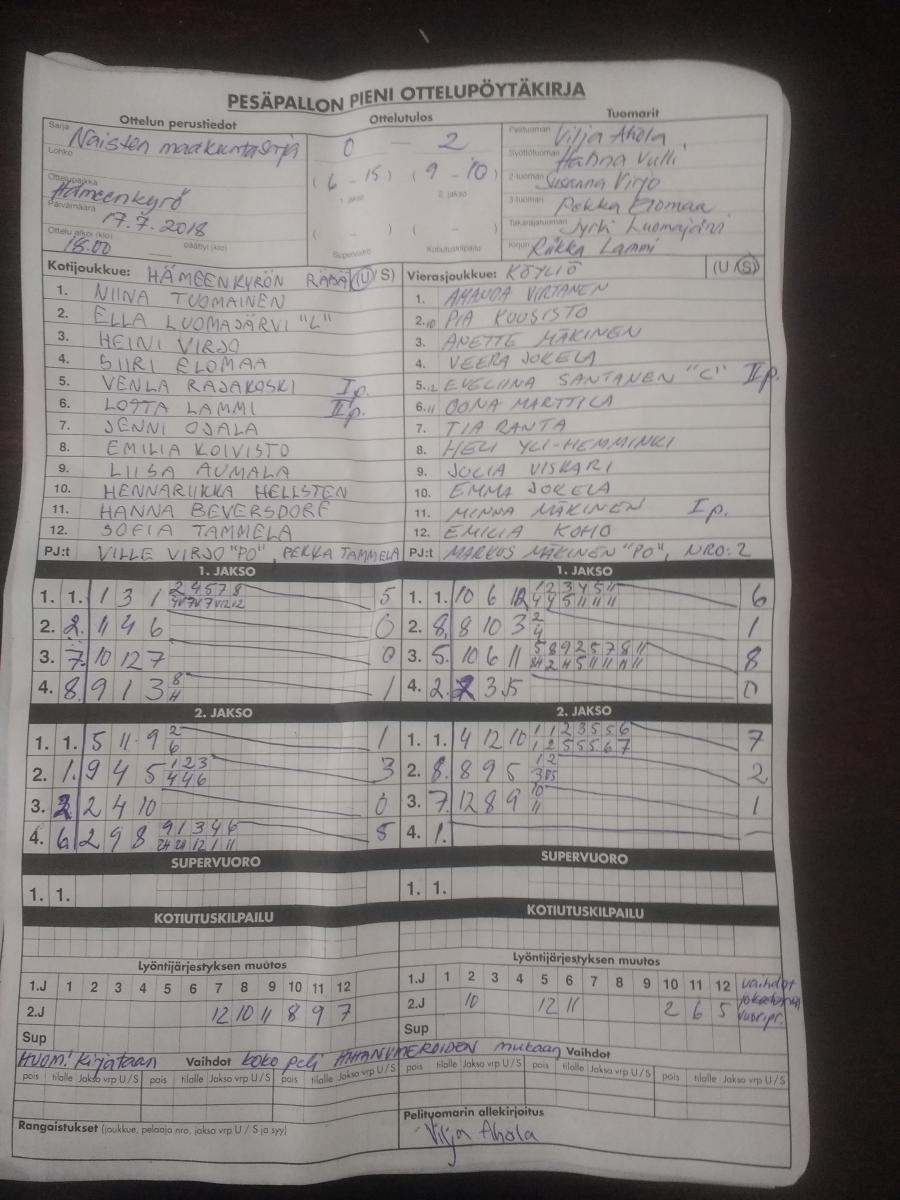 PESÄPALLON PIENI OTTELUPÖYTÄKIRJA
Ottelun perustiedot Ottelutulos Tuomarit
Sarja Naisten maakuntasarja 0 - 2 Pelituomari Vilja Ahola
Lohko Syöttötuomari Hanna Vulli
Ottelupaikka Hämeenkyrö (6 - 15) (9 - 10) 2-tuomari Susanna Virjo
1. jakso 2. jakso
Päivämäärä 17.7.2018 3-tuomari Pekka Elomaa
( - ) ( - ) Takarajatuomari Jyrki Luomajärvi
Ottelu alkoi (klo) 18.00 päättyi (klo) Supervuoro Kotiutuskilpailu Kirjuri Riikka Lammi
Kotijoukkue: HÄMEENKYRÖN (U/S) Vierasjoukkue: KÖYLIÖ (U/S)
1. NIINA TUOMAINEN 1. AMANDA VIRTANEN
2. ELLA LUOMAJÄRVI "L" 2.10 PIA KUUSISTO
3. HEINI VIRJO 3. ANETTE MÄKINEN
4. SIIRI ELOMAA 4. VEERA JOKELA
5. VENLA RAJAKOSKI I p. 5.12 EVELIINA SANTANEN "C" II p.
6. LOTTA LAMMI II p. 6.11 OONA MARTTILA
7. JENNI OJALA 7. TIA RANTA
8. EMILIA KOIVISTO 8. HELI YLI-HEMMINKI
9. LIISA AUMALA 9. JULIA VISKARI
10. HENNARIIKKA HELLSTEN 10. EMMA JOKELA
11. HANNA BEVERSDORF 11. MINNA MÄKINEN I p.
12. SOFIA TAMMELA 12. EMILIA KOHO
PJ:t VILLE VIRJO "PO", PEKKA TAMMELA PJ:t MARKUS MÄKINEN "PO", NRO: 2
1. JAKSO 1. JAKSO
1. 1. 1 3 1 2 4 5 7 8 5 1. 1. 10 6 12 1 2 3 4 5 11 6
4 4 5 11 11 11
2. 2. 11 4 6 0 2. 8. 8 10 3 2 1
4
3. 7. 10 12 7 0 3. 5. 10 6 11 5 8 9 2 5 7 8 11 8
4. 8. 9 1 3 8 1 4. 2. 2 3 5 0
2. JAKSO 2. JAKSO
1. 1. 5 11 9 2 1 1. 1. 4 12 10 1 1 2 3 5 5 6 7
6 1 2 5 5 5 6 7
2. 1. 9 4 5 1 2 3 3 2. 8. 8 9 5 1 2 2
4 4 6
3. 2. 2 4 10 0 3. 7. 12 8 9 10 1
11
4. 6. 2 9 8 9 1 3 4 6 5 4. 1. -
12 1 11
SUPERVUORO SUPERVUORO
1. 1. 1. 1.
KOTIUTUSKILPAILU KOTIUTUSKILPAILU
Lyöntijärjestyksen muutos Lyöntijärjestyksen muutos
1.J 1 2 3 4 5 6 7 8 9 10 11 12 1.J 1 2 3 4 5 6 7 8 9 10 11 12 vaihdot
2.J 12 10 11 8 9 7 2.J 10 12 11 2 6 5
Sup Sup
HUOM! Kirjataan Vaihdot koko peli IHANUMEROIDEN mukaan Vaihdot
pois tilalle Jakso vrp U/S pois tilalle Jakso vrp U/S pois tilalle Jakso vrp U/S pois tilalle Jakso vrp U/S pois tilalle Jakso vrp U/S pois tilalle Jakso vrp U/S
Rangaistukset (joukkue, pelaaja nro, jakso vrp U / S ja syy) Pelituomarin allekirjoitus
Vilja Ahola